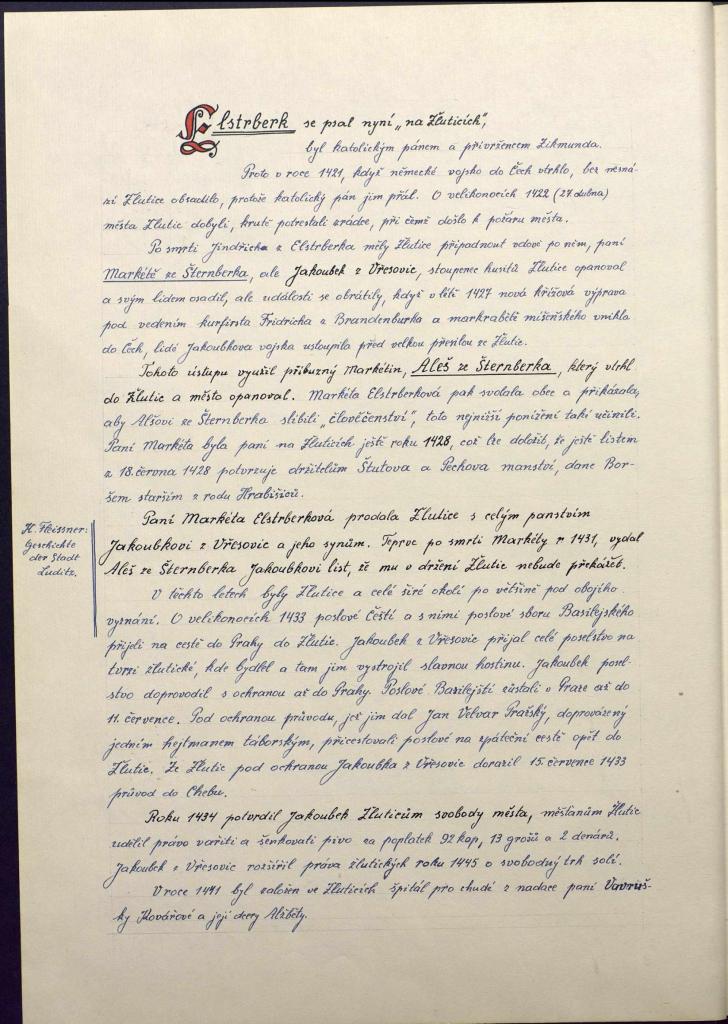 Elstrberk se psal nyní „na Žluticích",
byl katolickým pánem a přívržencem Zikmunda.
Proto v roce 1421, když německé vojsko do Čech vtrhlo, bez nesná-
zí Žlutice obsadilo, protože katolický pán jim přál. O velikonocích 1422 (27. dubna)
města Žlutic dobyli, krutě potrestali zrádce, při čemž došlo k požáru města.
Po smrti Jindřicha z Elstrberka měly Žlutice připadnout vdově po něm, paní
Markétě ze Šternberka, ale Jakoubek z Vřesovic, stoupenec husitů Žlutice opanoval
a svým lidem osadil, ale události se obrátily, když v létě 1427 nová křížová výprava
pod vedením kurfirsta Fridricha z Brandenburka a markraběte míšeňského vnikla
do Čech, lidé Jakoubkova vojska ustoupila před velkou přesilou ze Žlutic.
Tohoto ústupu využil příbuzný Markétin, Aleš ze Šternberka, který vtrhl
do Žlutic a město opanoval. Markéta Elstrberková pak svolala obec a přikázala,
aby Alšovi ze Šternberka slíbili „člověčenství", toto nejnižší ponížení také učinili.
Paní Markéta byla paní na Žluticích ještě roku 1428, což lze doložit, že ještě listem
z 18. června 1428 potvrzuje držitelům Štutova a Pěchova manství, dané Bor-
šem starším z rodu Hrabišiců.
Paní Markéta Elstrberková prodala Žlutice s celým panstvím
Jakoubkovi z Vřesovic a jeho synům. Teprve po smrti Markéty r. 1431, vydal
Aleš ze Šternberka Jakoubkovi list, že mu v držení Žlutic nebude překážeti.
H. Fleissner:
Geschichte
der Stadt
Luditz.
V těchto letech byly Žlutice a celé širé okolí po většině pod obojího
vyznání. O velikonocích 1433 poslové Čeští a s nimi poslové sboru Basilejského
přijeli na cestě do Prahy do Žlutic. Jakoubek z Vřesovic přijal celé poselstvo na
tvrzi žlutické, kde bydlel a tam jim vystrojil slavnou hostinu. Jakoubek posel-
stvo doprovodil s ochranou až do Prahy. Poslové Basilejští zůstali v Praze až do
11. července. Pod ochranou průvodu, jež jim dal Jan Velvar Pražský, doprovázený
jedním hejtmanem táborským, přicestovali poslové na zpáteční cestě opět do
Žlutic. Ze Žlutic pod ochranou Jakoubka z Vřesovic dorazil 15. července 1433
průvod do Chebu.
Roku 1434 potvrdil Jakoubek Žluticům svobody města, měšťanům Žlutic
udělil právo vařiti a šenkovati pivo za poplatek 92 kop, 13 grošů a 2 denárů.
Jakoubek z Vřesovic rozšířil práva žlutických roku 1445 o svobodný trh solí.
V roce 1441 byl založen ve Žluticích špitál pro chudé z nadace paní Vavruš-
ky Kovářové a její dcery Alžběty.